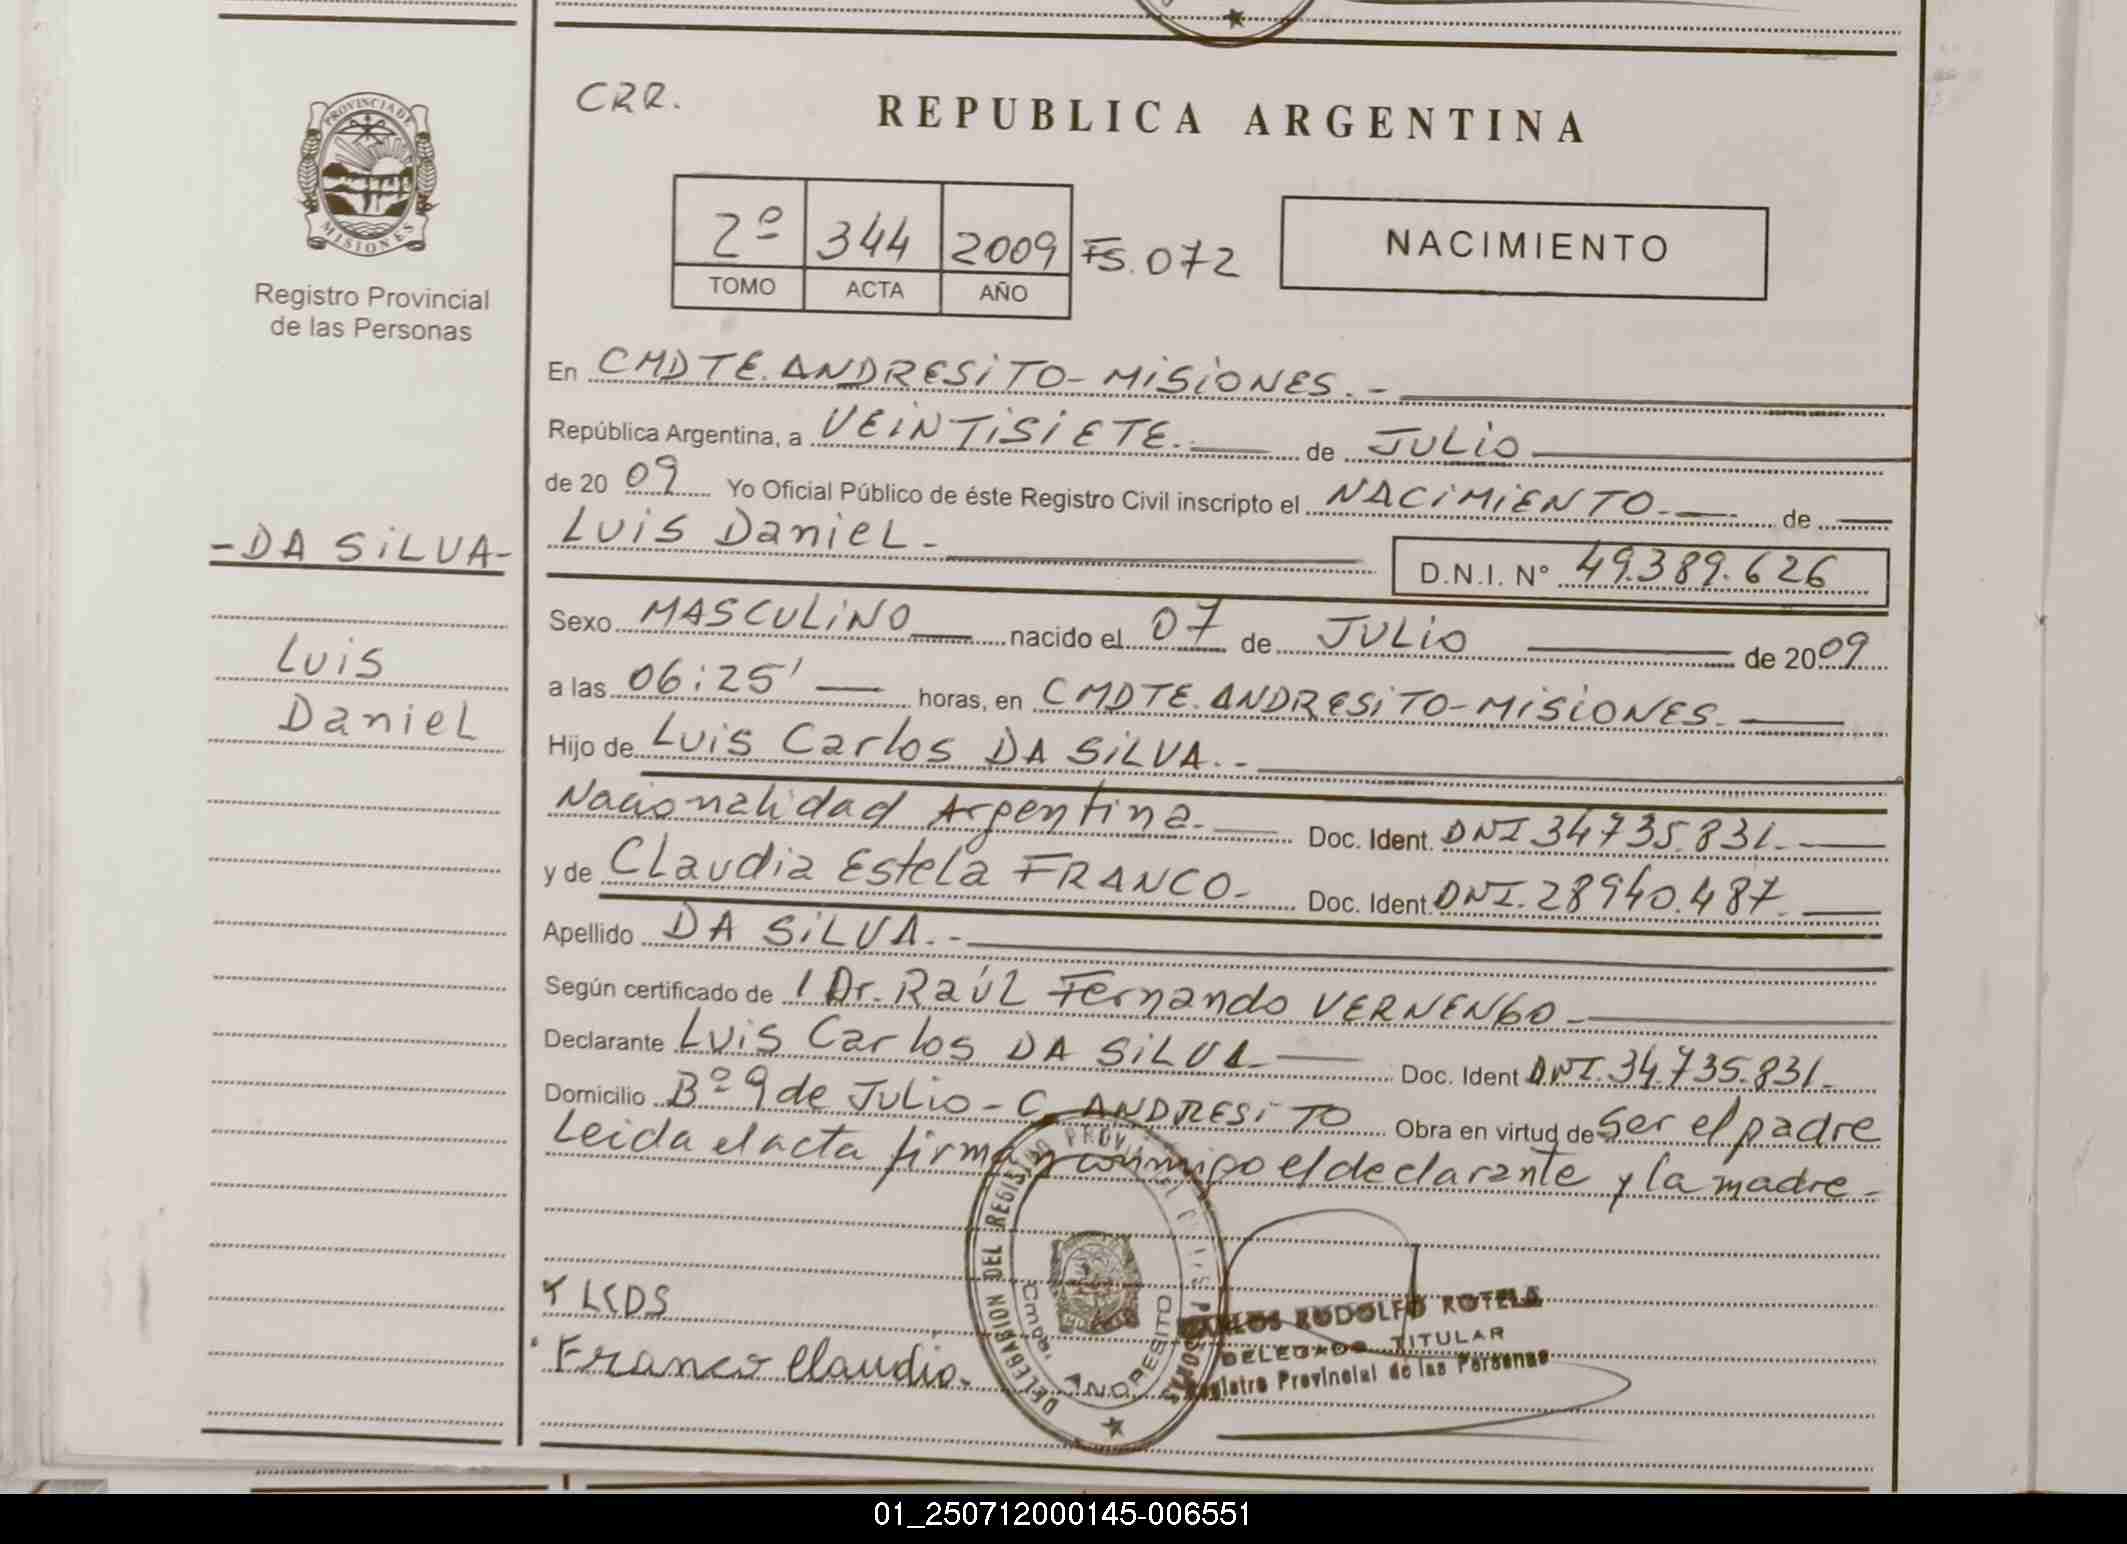 CRR.
REPUBLICA ARGENTINA
PROVINCIA DE MISIONES
Registro Provincial
de las Personas
2º 344 2009 FS. 072
TOMO ACTA AÑO
NACIMIENTO
En CMDTE. ANDRESITO - MISIONES. -
República Argentina, a VEINTISIETE. de JULIO
de 20 09 Yo Oficial Público de éste Registro Civil inscripto el NACIMIENTO. - de
- DA SILVA -
Luis Daniel -
D.N.I. Nº 49.389.626
Luis
Daniel
Sexo MASCULINO nacido el 07 de JULIO de 2009
a las 06:25' horas, en CMDTE. ANDRESITO - MISIONES.
Hijo de Luis Carlos DA SILVA. -
Nacionalidad Argentina. Doc. Ident. DNI 34735.831.
y de Claudia Estela FRANCO - Doc. Ident. DNI. 28940.487.
Apellido DA SILVA. -
Según certificado de l Dr. Raúl Fernando VERNENGO -
Declarante Luis Carlos DA SILVA Doc. Ident DNI. 34.735.831.
Domicilio Bº 9 de Julio - C. ANDRESITO Obra en virtud de Ser el padre
Leida el acta firman conmigo el declarante y la madre -
LCDS
Franco Claudia.
DELEGACION DEL REGISTRO PROV. DE LAS PERSONAS
Cmdte. ANDRESITO
CARLOS RODOLFO ROTELA
DELEGADO TITULAR
Registro Provincial de las Personas
01_250712000145-006551